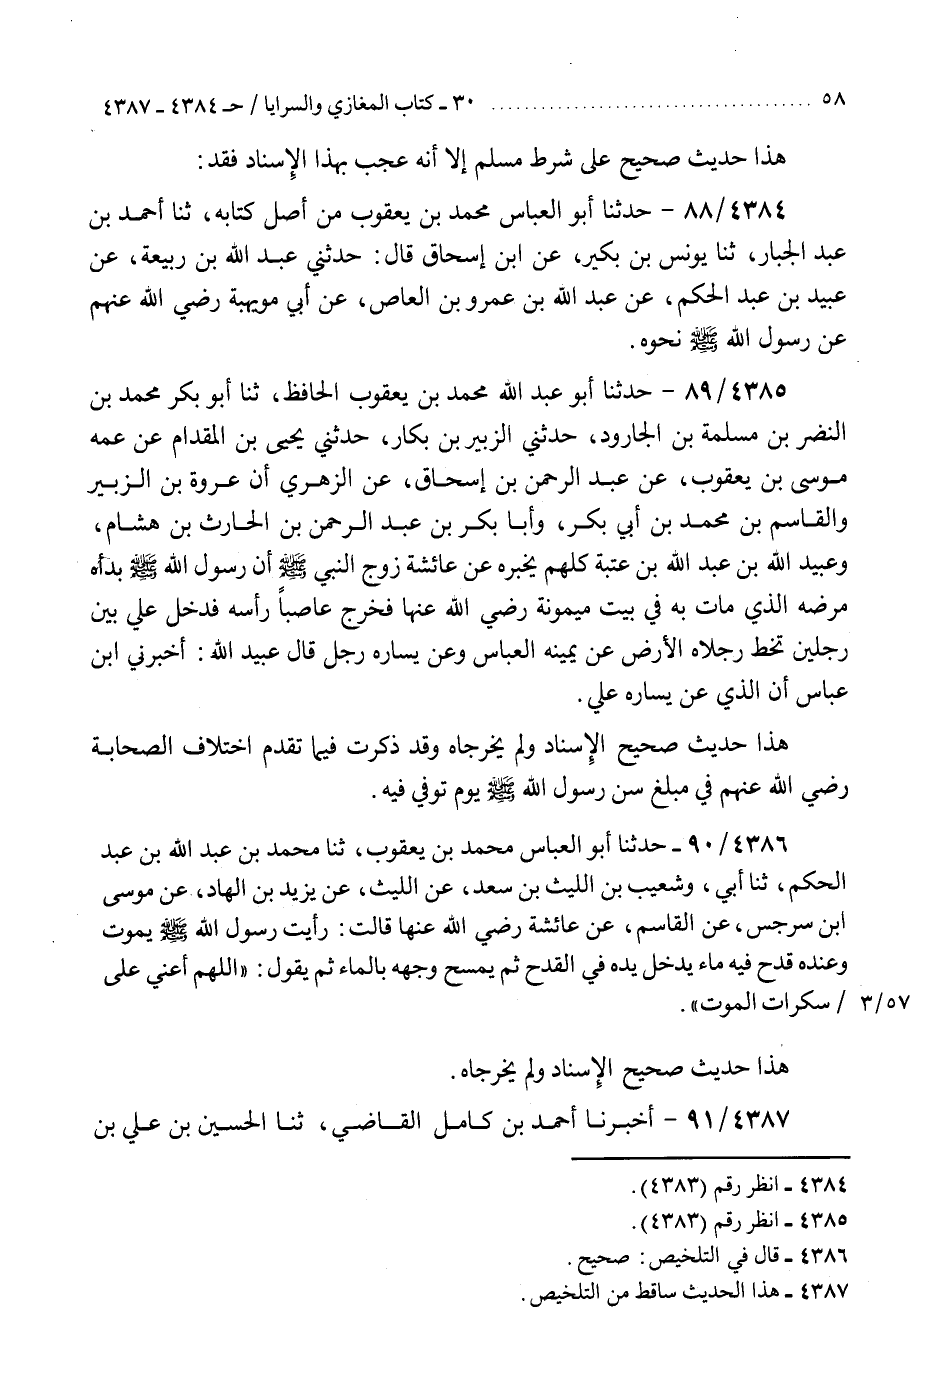 ٥٨ ..................................... ٣٠ ـ كتاب المغازي والسرايا / حـ ٤٣٨٤ ـ ٤٣٨٧
هذا حديث صحيح على شرط مسلم إلا أنه عجب بهذا الإِسناد فقد:
٨٨/٤٣٨٤ - حدثنا أبو العباس محمد بن يعقوب من أصل كتابه، ثنا أحمد بن
عبد الجبار، ثنا يونس بن بكير، عن ابن إسحاق قال: حدثني عبد الله بن ربيعة، عن
عبيد بن عبد الحكم، عن عبد الله بن عمرو بن العاص، عن أبي مويهبة رضي الله عنهم
عن رسول الله ﷺ نحوه.
٨٩/٤٣٨٥ - حدثنا أبو عبد الله محمد بن يعقوب الحافظ، ثنا أبو بكر محمد بن
النضر بن مسلمة بن الجارود، حدثني الزبير بن بكار، حدثني يحيى بن المقدام عن عمه
موسى بن يعقوب، عن عبد الرحمن بن إسحاق، عن الزهري أن عروة بن الزبير
والقاسم بن محمد بن أبي بكر، وأبا بكر بن عبد الرحمن بن الحارث بن هشام،
وعبيد الله بن عبد الله بن عتبة كلهم يخبره عن عائشة زوج النبي ﷺ أن رسول الله ﷺ بدأه
مرضه الذي مات به في بيت ميمونة رضي الله عنها فخرج عاصباً رأسه فدخل علي بين
رجلين تخط رجلاه الأرض عن يمينه العباس وعن يساره رجل قال عبيد الله: أخبرني ابن
عباس أن الذي عن يساره علي.
هذا حديث صحيح الإِسناد ولم يخرجاه وقد ذكرت فيما تقدم اختلاف الصحابة
رضي الله عنهم في مبلغ سن رسول الله ﷺ يوم توفي فيه.
٩٠/٤٣٨٦ ـ حدثنا أبو العباس محمد بن يعقوب، ثنا محمد بن عبد الله بن عبد
الحكم، ثنا أبي، وشعيب بن الليث بن سعد، عن الليث، عن يزيد بن الهاد، عن موسى
ابن سرجس، عن القاسم، عن عائشة رضي الله عنها قالت: رأيت رسول الله ﷺ يموت
وعنده قدح فيه ماء يدخل يده في القدح ثم يمسح وجهه بالماء ثم يقول: «اللهم أعني على
٣/٥٧ / سكرات الموت».
هذا حديث صحيح الإِسناد ولم يخرجاه.
٩١/٤٣٨٧ - أخبرنا أحمد بن كامل القاضي، ثنا الحسين بن علي بن
٤٣٨٤ ـ انظر رقم (٤٣٨٣).
٤٣٨٥ ـ انظر رقم (٤٣٨٣).
٤٣٨٦ ـ قال في التلخيص: صحيح.
٤٣٨٧ ـ هذا الحديث ساقط من التلخيص.